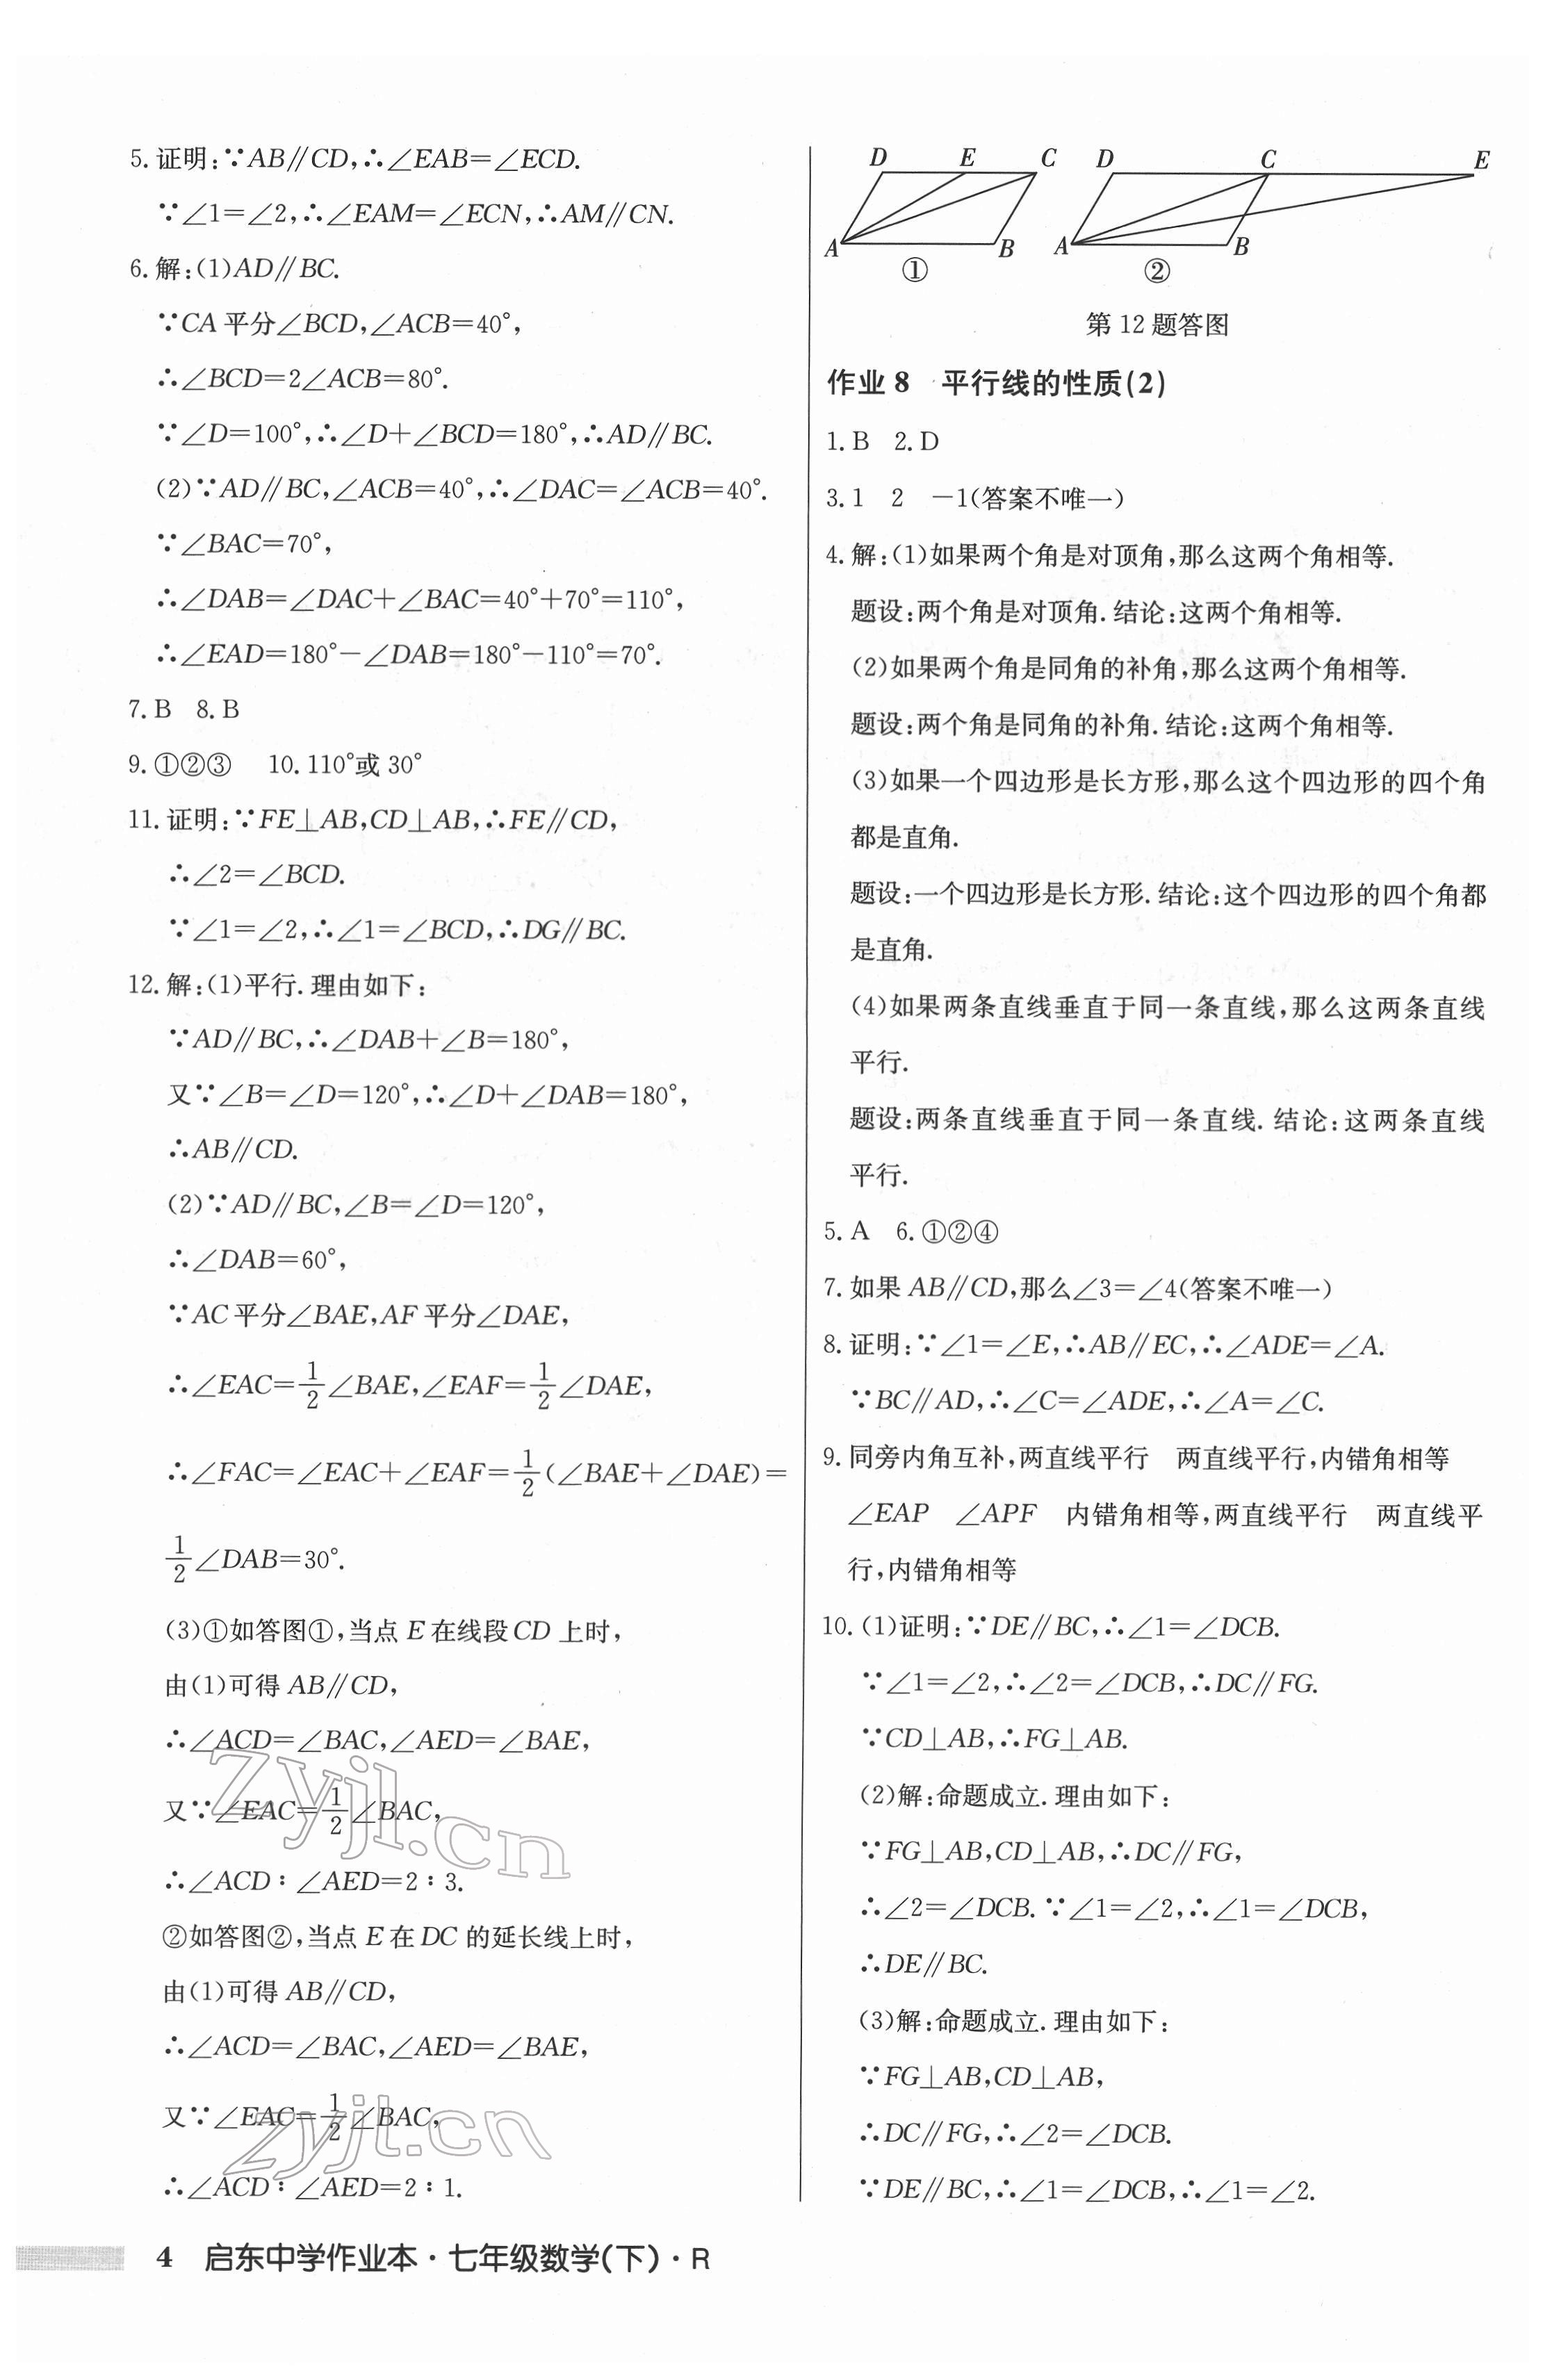 5. 证明:∵AB∥CD,∴∠EAB=∠ECD.
∵∠1=∠2,∴∠EAM=∠ECN,∴AM∥CN.
6. 解:(1)AD∥BC.
∵CA 平分∠BCD,∠ACB=40°,
∴∠BCD=2∠ACB=80°.
∵∠D=100°,∴∠D+∠BCD=180°,∴AD∥BC.
(2)∵AD∥BC,∠ACB=40°,∴∠DAC=∠ACB=40°.
∵∠BAC=70°,
∴∠DAB=∠DAC+∠BAC=40°+70°=110°,
∴∠EAD=180°-∠DAB=180°-110°=70°.
7. B 8. B
9. ①②③ 10. 110°或 30°
11. 证明:∵FE⊥AB,CD⊥AB,∴FE∥CD,
∴∠2=∠BCD.
∵∠1=∠2,∴∠1=∠BCD,∴DG∥BC.
12. 解:(1)平行. 理由如下:
∵AD∥BC,∴∠DAB+∠B=180°,
又∵∠B=∠D=120°,∴∠D+∠DAB=180°,
∴AB∥CD.
(2)∵AD∥BC,∠B=∠D=120°,
∴∠DAB=60°,
∵AC 平分∠BAE,AF 平分∠DAE,
∴∠EAC=1/2∠BAE,∠EAF=1/2∠DAE,
∴∠FAC=∠EAC+∠EAF=1/2(∠BAE+∠DAE)=
1/2∠DAB=30°.
(3)①如答图①,当点 E 在线段 CD 上时,
由(1)可得 AB∥CD,
∴∠ACD=∠BAC,∠AED=∠BAE,
又∵∠EAC=1/2∠BAC,
∴∠ACD:∠AED=2:3.
②如答图②,当点 E 在 DC 的延长线上时,
由(1)可得 AB∥CD,
∴∠ACD=∠BAC,∠AED=∠BAE,
又∵∠EAC=1/2∠BAC,
∴∠ACD:∠AED=2:1.
D E C D C E
A B A B
① ②
第 12 题答图
作业 8 平行线的性质(2)
1. B 2. D
3. 1 2 -1(答案不唯一)
4. 解:(1)如果两个角是对顶角,那么这两个角相等.
题设:两个角是对顶角. 结论:这两个角相等.
(2)如果两个角是同角的补角,那么这两个角相等.
题设:两个角是同角的补角. 结论:这两个角相等.
(3)如果一个四边形是长方形,那么这个四边形的四个角
都是直角.
题设:一个四边形是长方形. 结论:这个四边形的四个角都
是直角.
(4)如果两条直线垂直于同一条直线,那么这两条直线
平行.
题设:两条直线垂直于同一条直线. 结论:这两条直线
平行.
5. A 6. ①②④
7. 如果 AB∥CD,那么∠3=∠4(答案不唯一)
8. 证明:∵∠1=∠E,∴AB∥EC,∴∠ADE=∠A.
∵BC∥AD,∴∠C=∠ADE,∴∠A=∠C.
9. 同旁内角互补,两直线平行 两直线平行,内错角相等
∠EAP ∠APF 内错角相等,两直线平行 两直线平
行,内错角相等
10. (1)证明:∵DE∥BC,∴∠1=∠DCB.
∵∠1=∠2,∴∠2=∠DCB,∴DC∥FG.
∵CD⊥AB,∴FG⊥AB.
(2)解:命题成立. 理由如下:
∵FG⊥AB,CD⊥AB,∴DC∥FG,
∴∠2=∠DCB. ∵∠1=∠2,∴∠1=∠DCB,
∴DE∥BC.
(3)解:命题成立. 理由如下:
∵FG⊥AB,CD⊥AB,
∴DC∥FG,∴∠2=∠DCB.
∵DE∥BC,∴∠1=∠DCB,∴∠1=∠2.
zyjl.cn
zyjl.cn
4 启东中学作业本·七年级数学(下)·R